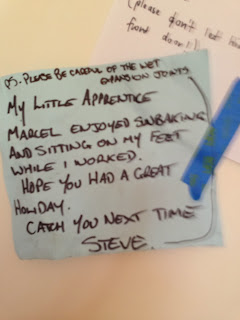 PS. PLEASE BE CAREFUL OF THE WET
EXPANSION JOINTS
MY LITTLE APPRENTICE
MARCEL ENJOYED SUNBAKING
AND SITTING ON MY FEET
WHILE I WORKED.
HOPE YOU HAD A GREAT
HOLIDAY.
CATCH YOU NEXT TIME
STEVE.
(please don't let
front door!!)